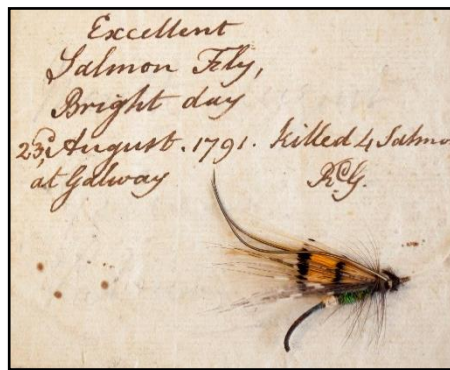 Excellent
Salmon Fly,
Bright day
23d, August. 1791. Killed 4 Salmo
at Galway RCG.